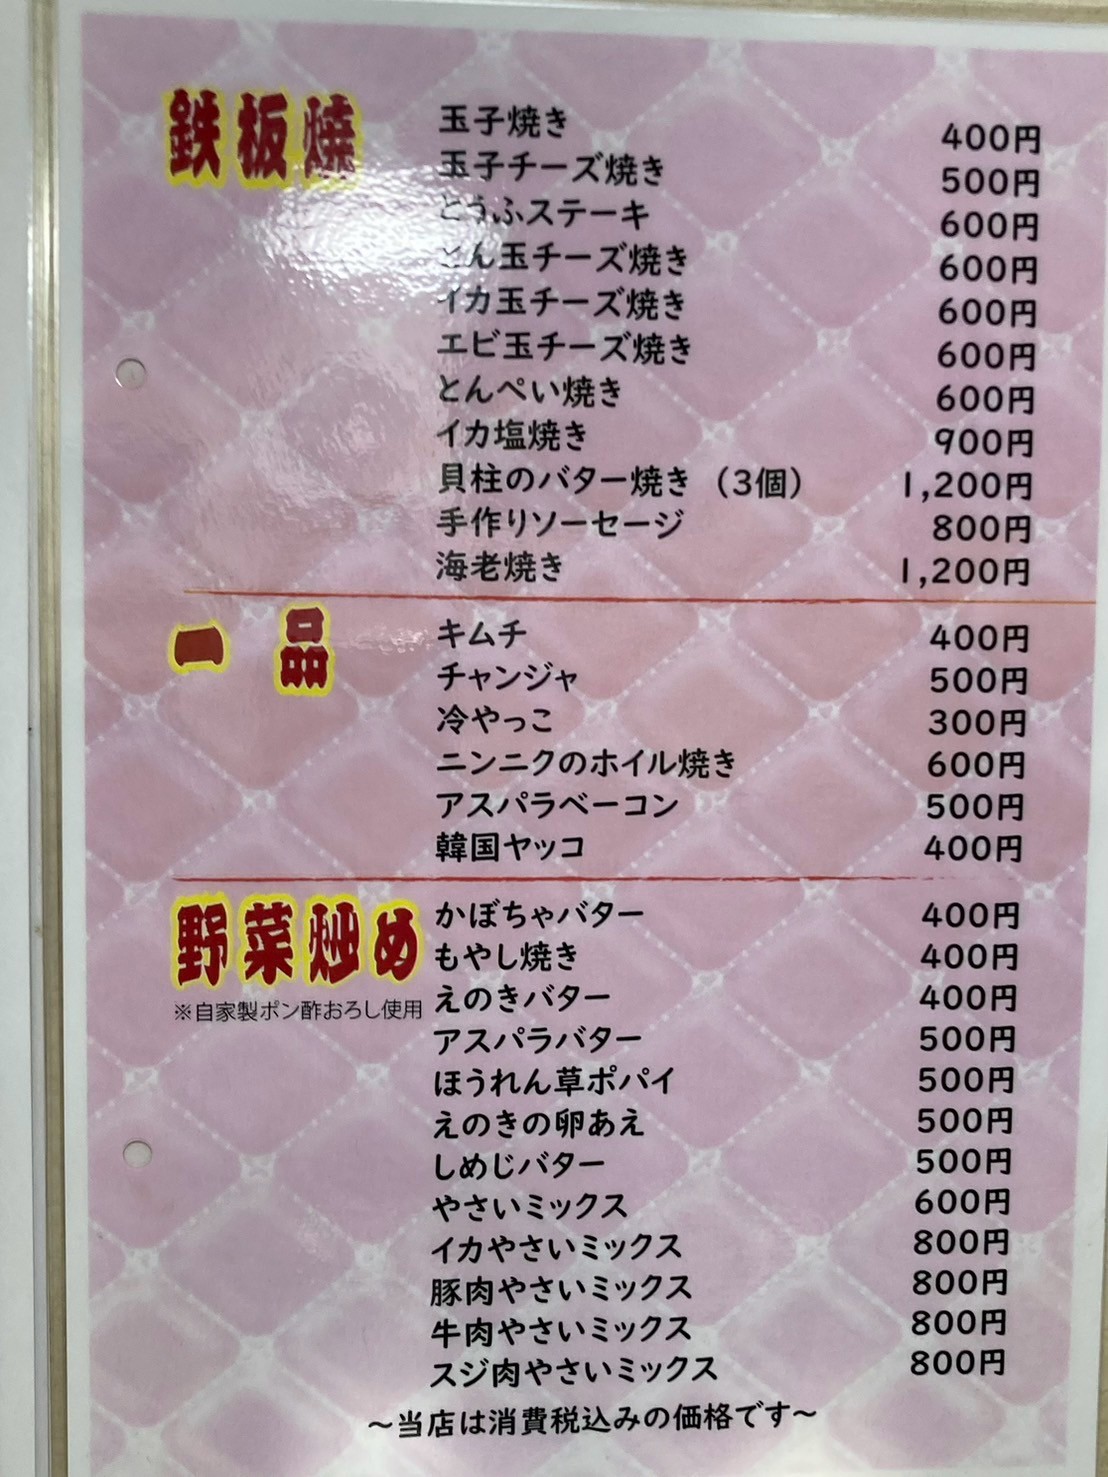 鉄板焼
玉子焼き 400円
玉子チーズ焼き 500円
とうふステーキ 600円
とん玉チーズ焼き 600円
イカ玉チーズ焼き 600円
エビ玉チーズ焼き 600円
とんぺい焼き 600円
イカ塩焼き 900円
貝柱のバター焼き（3個） 1,200円
手作りソーセージ 800円
海老焼き 1,200円
一品
キムチ 400円
チャンジャ 500円
冷やっこ 300円
ニンニクのホイル焼き 600円
アスパラベーコン 500円
韓国ヤッコ 400円
野菜炒め
※自家製ポン酢おろし使用
かぼちゃバター 400円
もやし焼き 400円
えのきバター 400円
アスパラバター 500円
ほうれん草ポパイ 500円
えのきの卵あえ 500円
しめじバター 500円
やさいミックス 600円
イカやさいミックス 800円
豚肉やさいミックス 800円
牛肉やさいミックス 800円
スジ肉やさいミックス 800円
～当店は消費税込みの価格です～